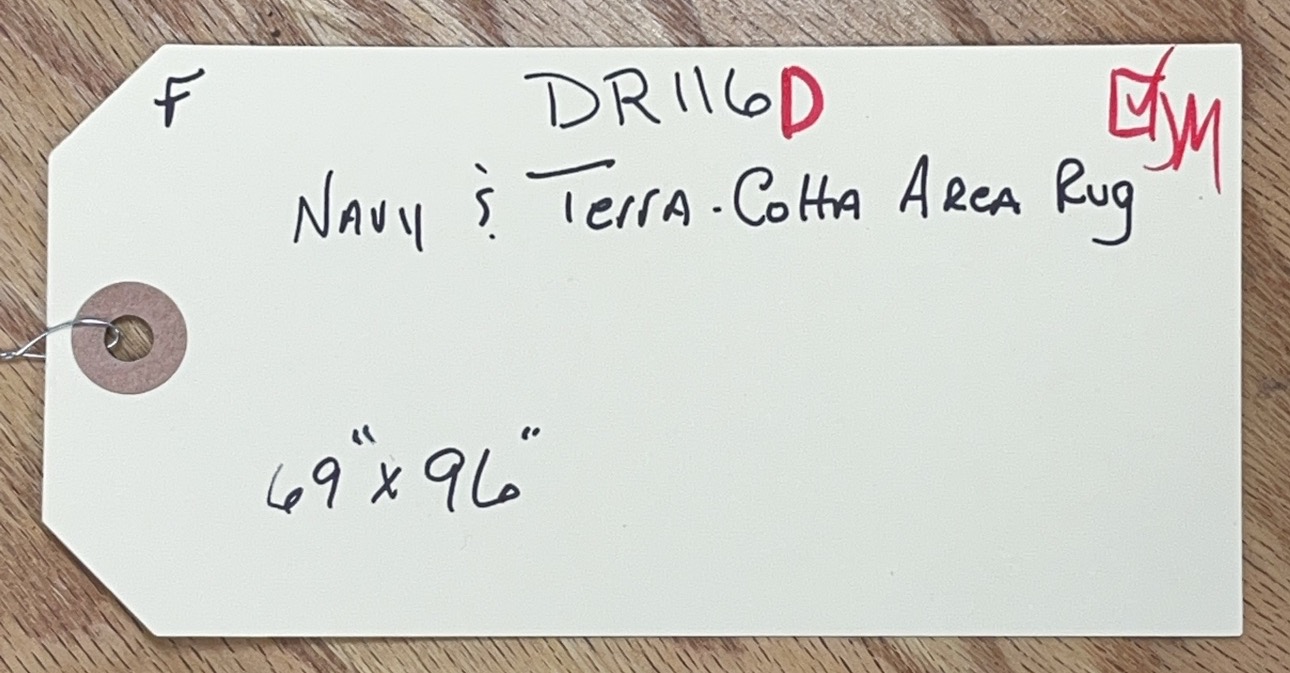 F DR116D ☑ JM
Navy & Terra-Cotta Area Rug
69" x 96"